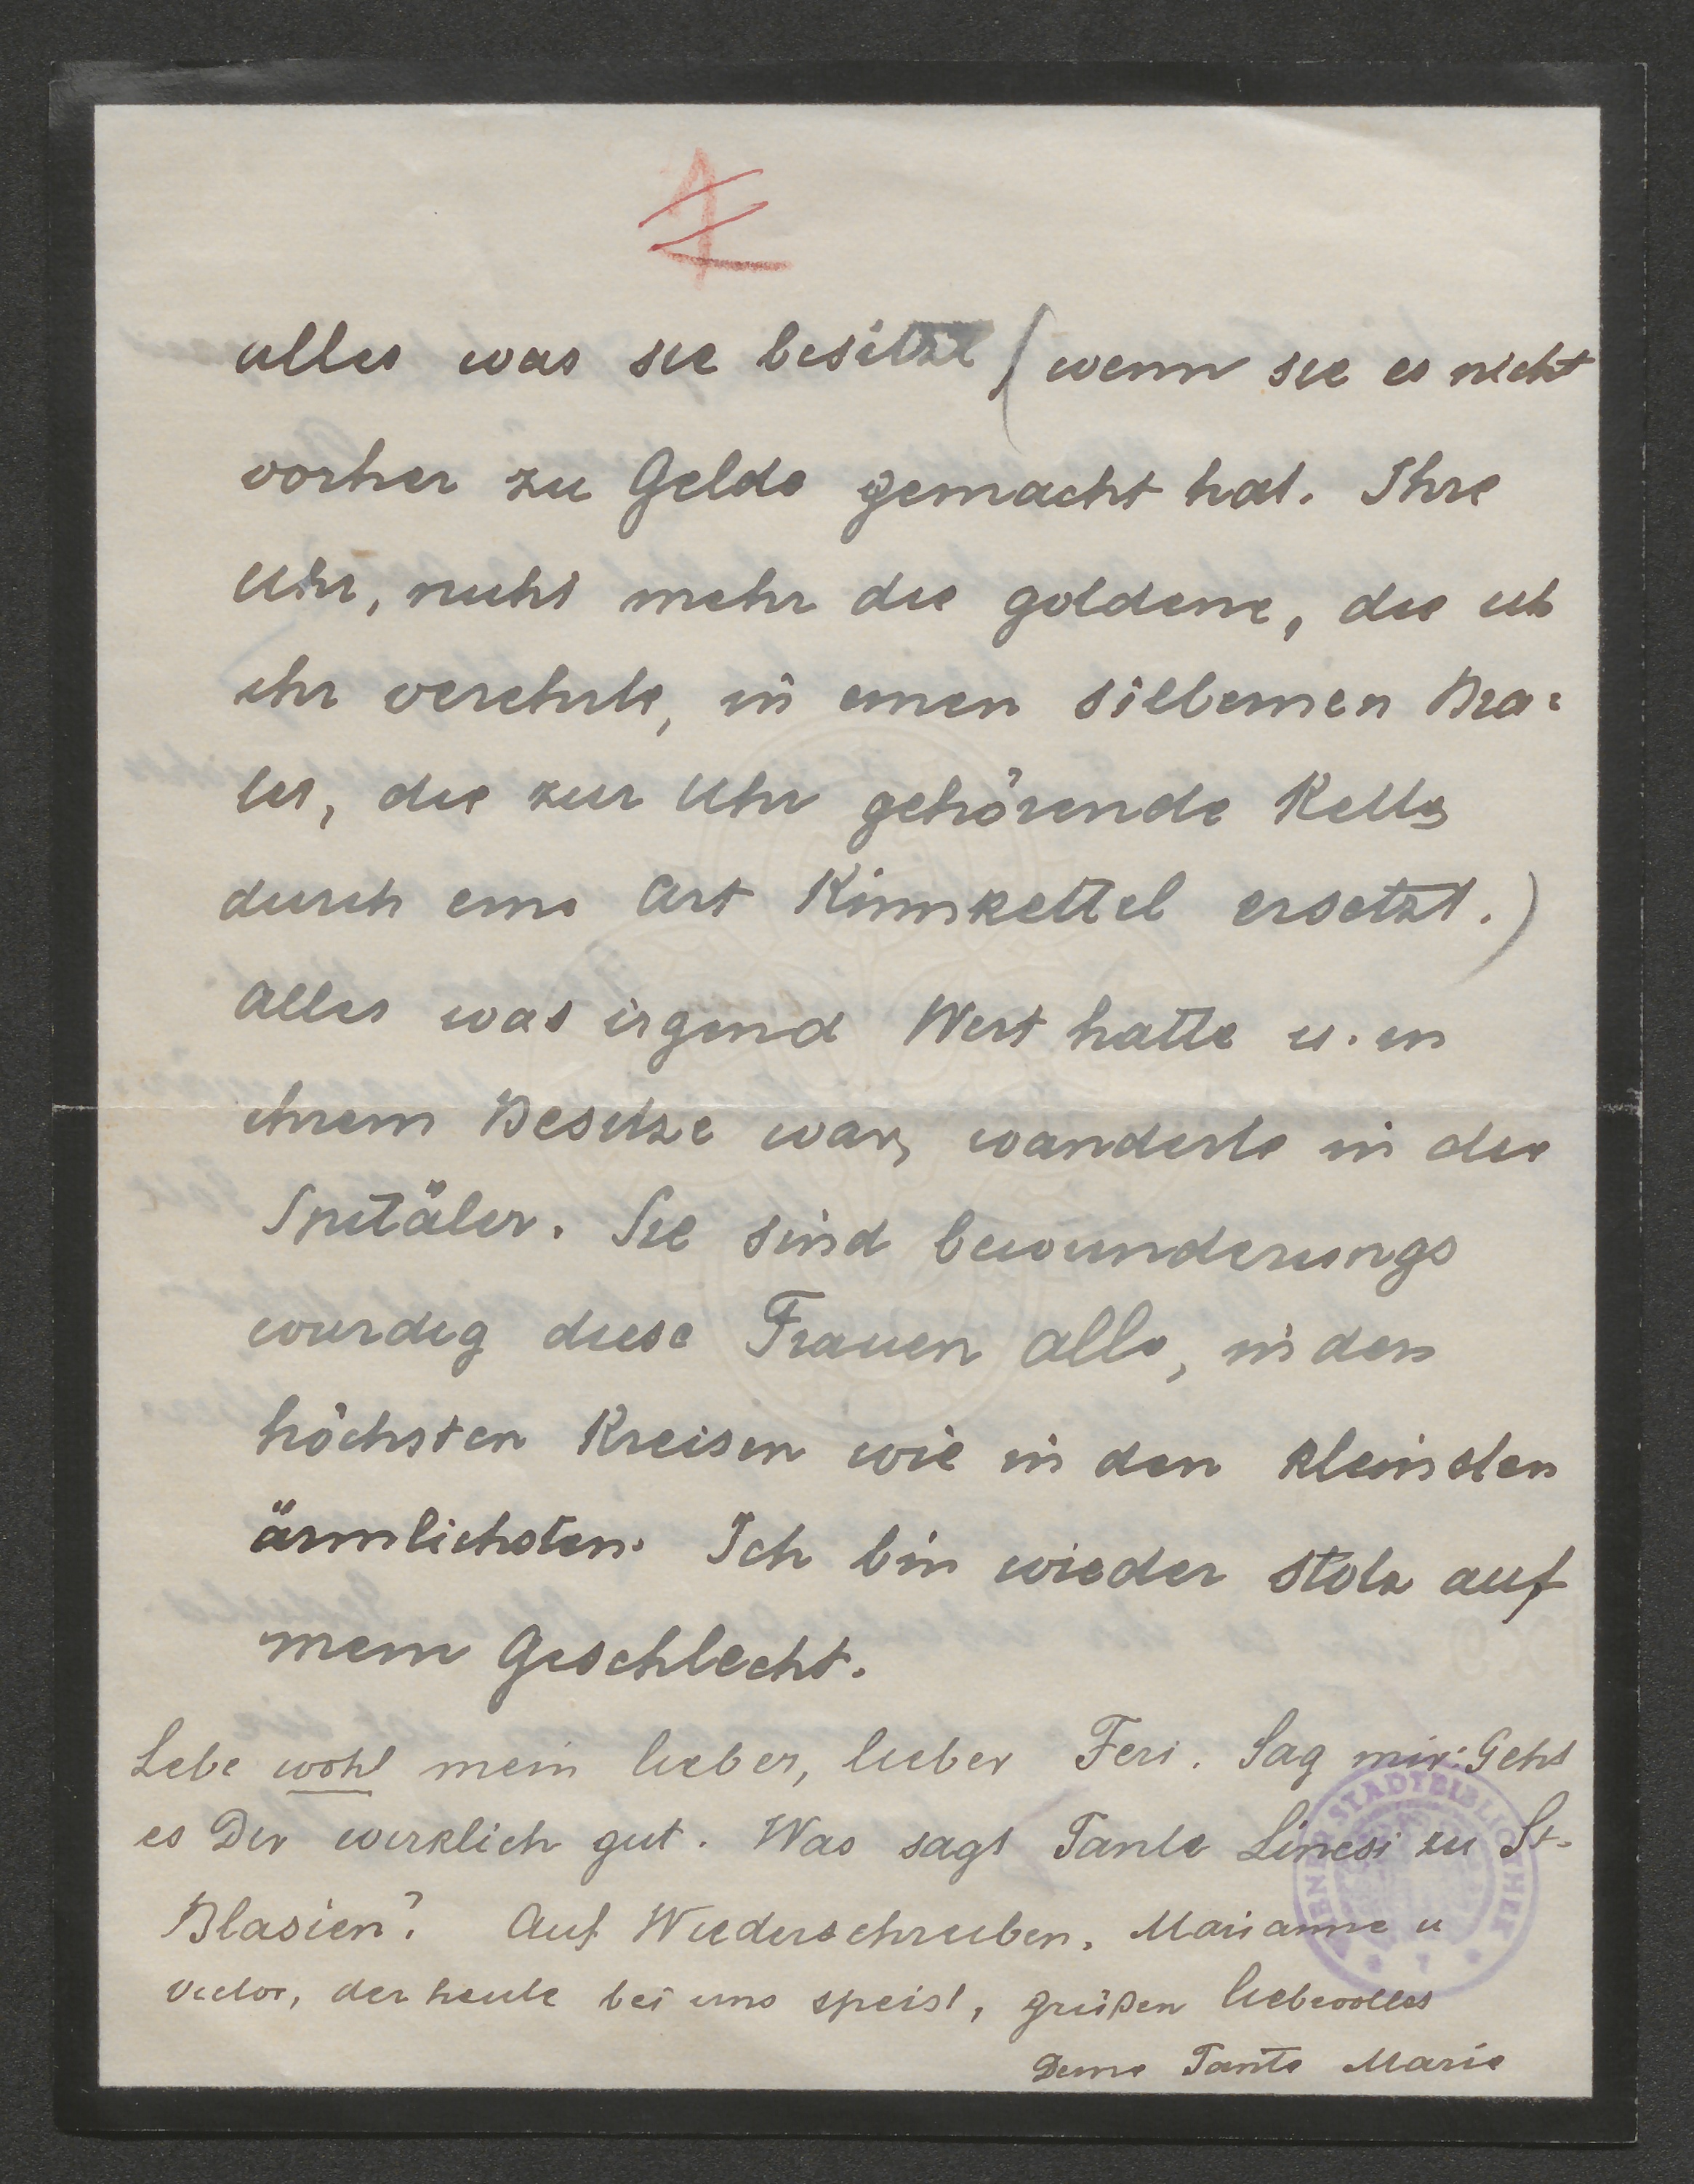 1
alles was sie besitzt (wenn sie es nicht
vorher zu Gelde gemacht hat. Ihre
Uhr, nicht mehr die goldene, die ich
ihr verehrte, in einen silbernen Bra=
let, die zur Uhr gehörende Kette
durch eine Art Kinnkettel ersetzt.)
Alles was irgend Wert hatte u. in
ihrem Besitze war, wanderte in die
Spitäler. Sie sind bewunderungs
würdig diese Frauen alle, in den
höchsten Kreisen wie in den kleinsten
ärmlichsten. Ich bin wieder stolz auf
mein Geschlecht.
Lebe wohl mein lieber, lieber Feri. Sag mir: Geht
es Dir wirklich gut. Was sagt Tante Lincsi zu St.
Blasien? Auf Wiederschreiben. Marianne u
Victor, der heute bei uns speist, grüßen liebevollst
Deine Tante Marie
WIENER STADTBIBLIOTHEK